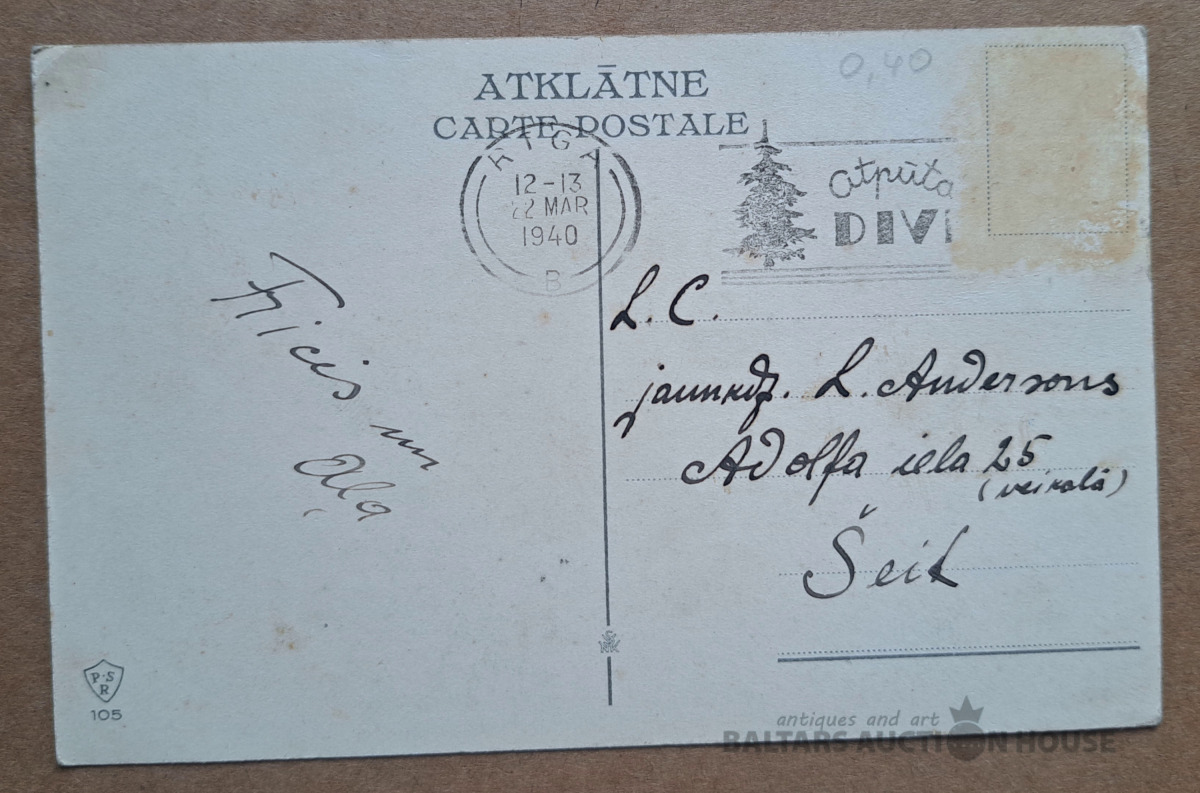 ATKLĀTNE
CARTE POSTALE
0,40
RIGA
12-13
22 MAR
1940
B
atpūta
DIVI
L. C.
jaunkdz. L. Andersons
Adolfa iela 25
(veikalā)
Šeit
un
P.S
R
105
antiques and art
BALTARS AUCTION HOUSE